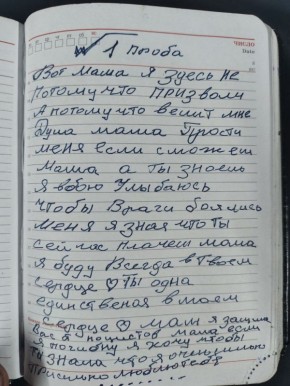 ЧИСЛО
Date
1 проба
Вот мама я здесь не
потому что призвали
А потому что велит мне
Душа мама Прости
меня если сможеш
Мама а ты знаешь
Я в бою Улыбаюсь
чтобы Враги боялись
меня Я зная что ты
сейчас плачеш мама
Я буду Всегда в Твоем
сердце ♡ ты одна
единственая в моем
сердце ♡ мам я защищ
Вас я нацистов мама если
я погибну я хочу чтобы
Ты знала что я очень сильно